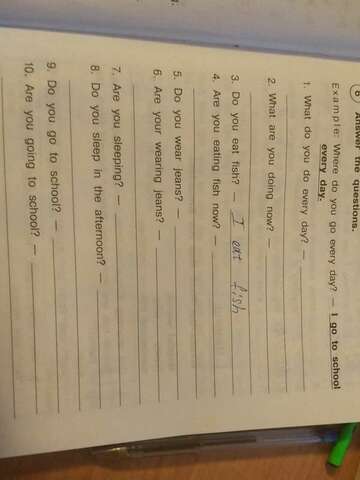 6 Answer the questions.
Example: Where do you go every day? — I go to school
every day.
1. What do you do every day? —
2. What are you doing now? —
3. Do you eat fish? — I eat fish
4. Are you eating fish now? —
5. Do you wear jeans? —
6. Are your wearing jeans? —
7. Are you sleeping? —
8. Do you sleep in the afternoon? —
9. Do you go to school? —
10. Are you going to school? —